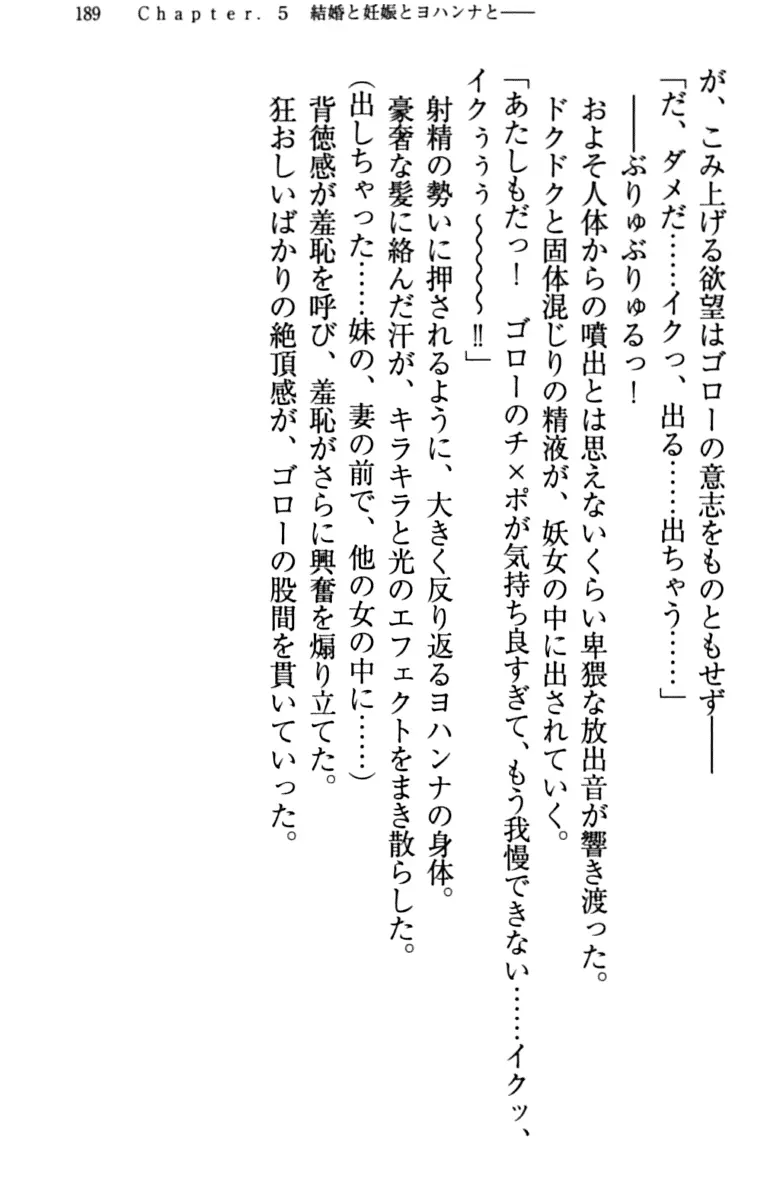 189　Chapter. 5　結婚と妊娠とヨハンナと――
が、こみ上げる欲望はゴローの意志をものともせず――
「だ、ダメだ……イクっ、出る……出ちゃう……」
――ぶりゅぶりゅるっ！
およそ人体からの噴出とは思えないくらい卑猥な放出音が響き渡った。
ドクドクと固体混じりの精液が、妖女の中に出されていく。
「あたしもだっ！　ゴローのチ×ポが気持ち良すぎて、もう我慢できない……イクッ、
イクぅぅぅ～～～～‼」
射精の勢いに押されるように、大きく反り返るヨハンナの身体。
豪奢な髪に絡んだ汗が、キラキラと光のエフェクトをまき散らした。
（出しちゃった……妹の、妻の前で、他の女の中に……）
背徳感が羞恥を呼び、羞恥がさらに興奮を煽り立てた。
狂おしいばかりの絶頂感が、ゴローの股間を貫いていった。